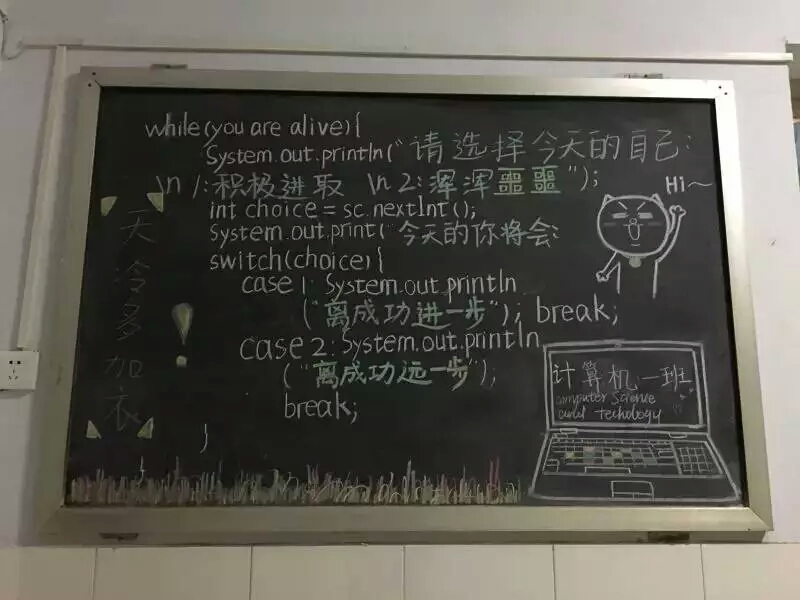 while(you are alive){
System.out.println("请选择今天的自己:
\n 1:积极进取 \n 2:浑浑噩噩");
int choice = sc.nextInt();
System.out.print("今天的你将会:
switch(choice){
case 1: System.out.println
("离成功进一步"); break;
case 2: System.out.println
("离成功远一步");
break;
}
天冷多加衣!
Hi~
计算机一班
computer Science
and techology